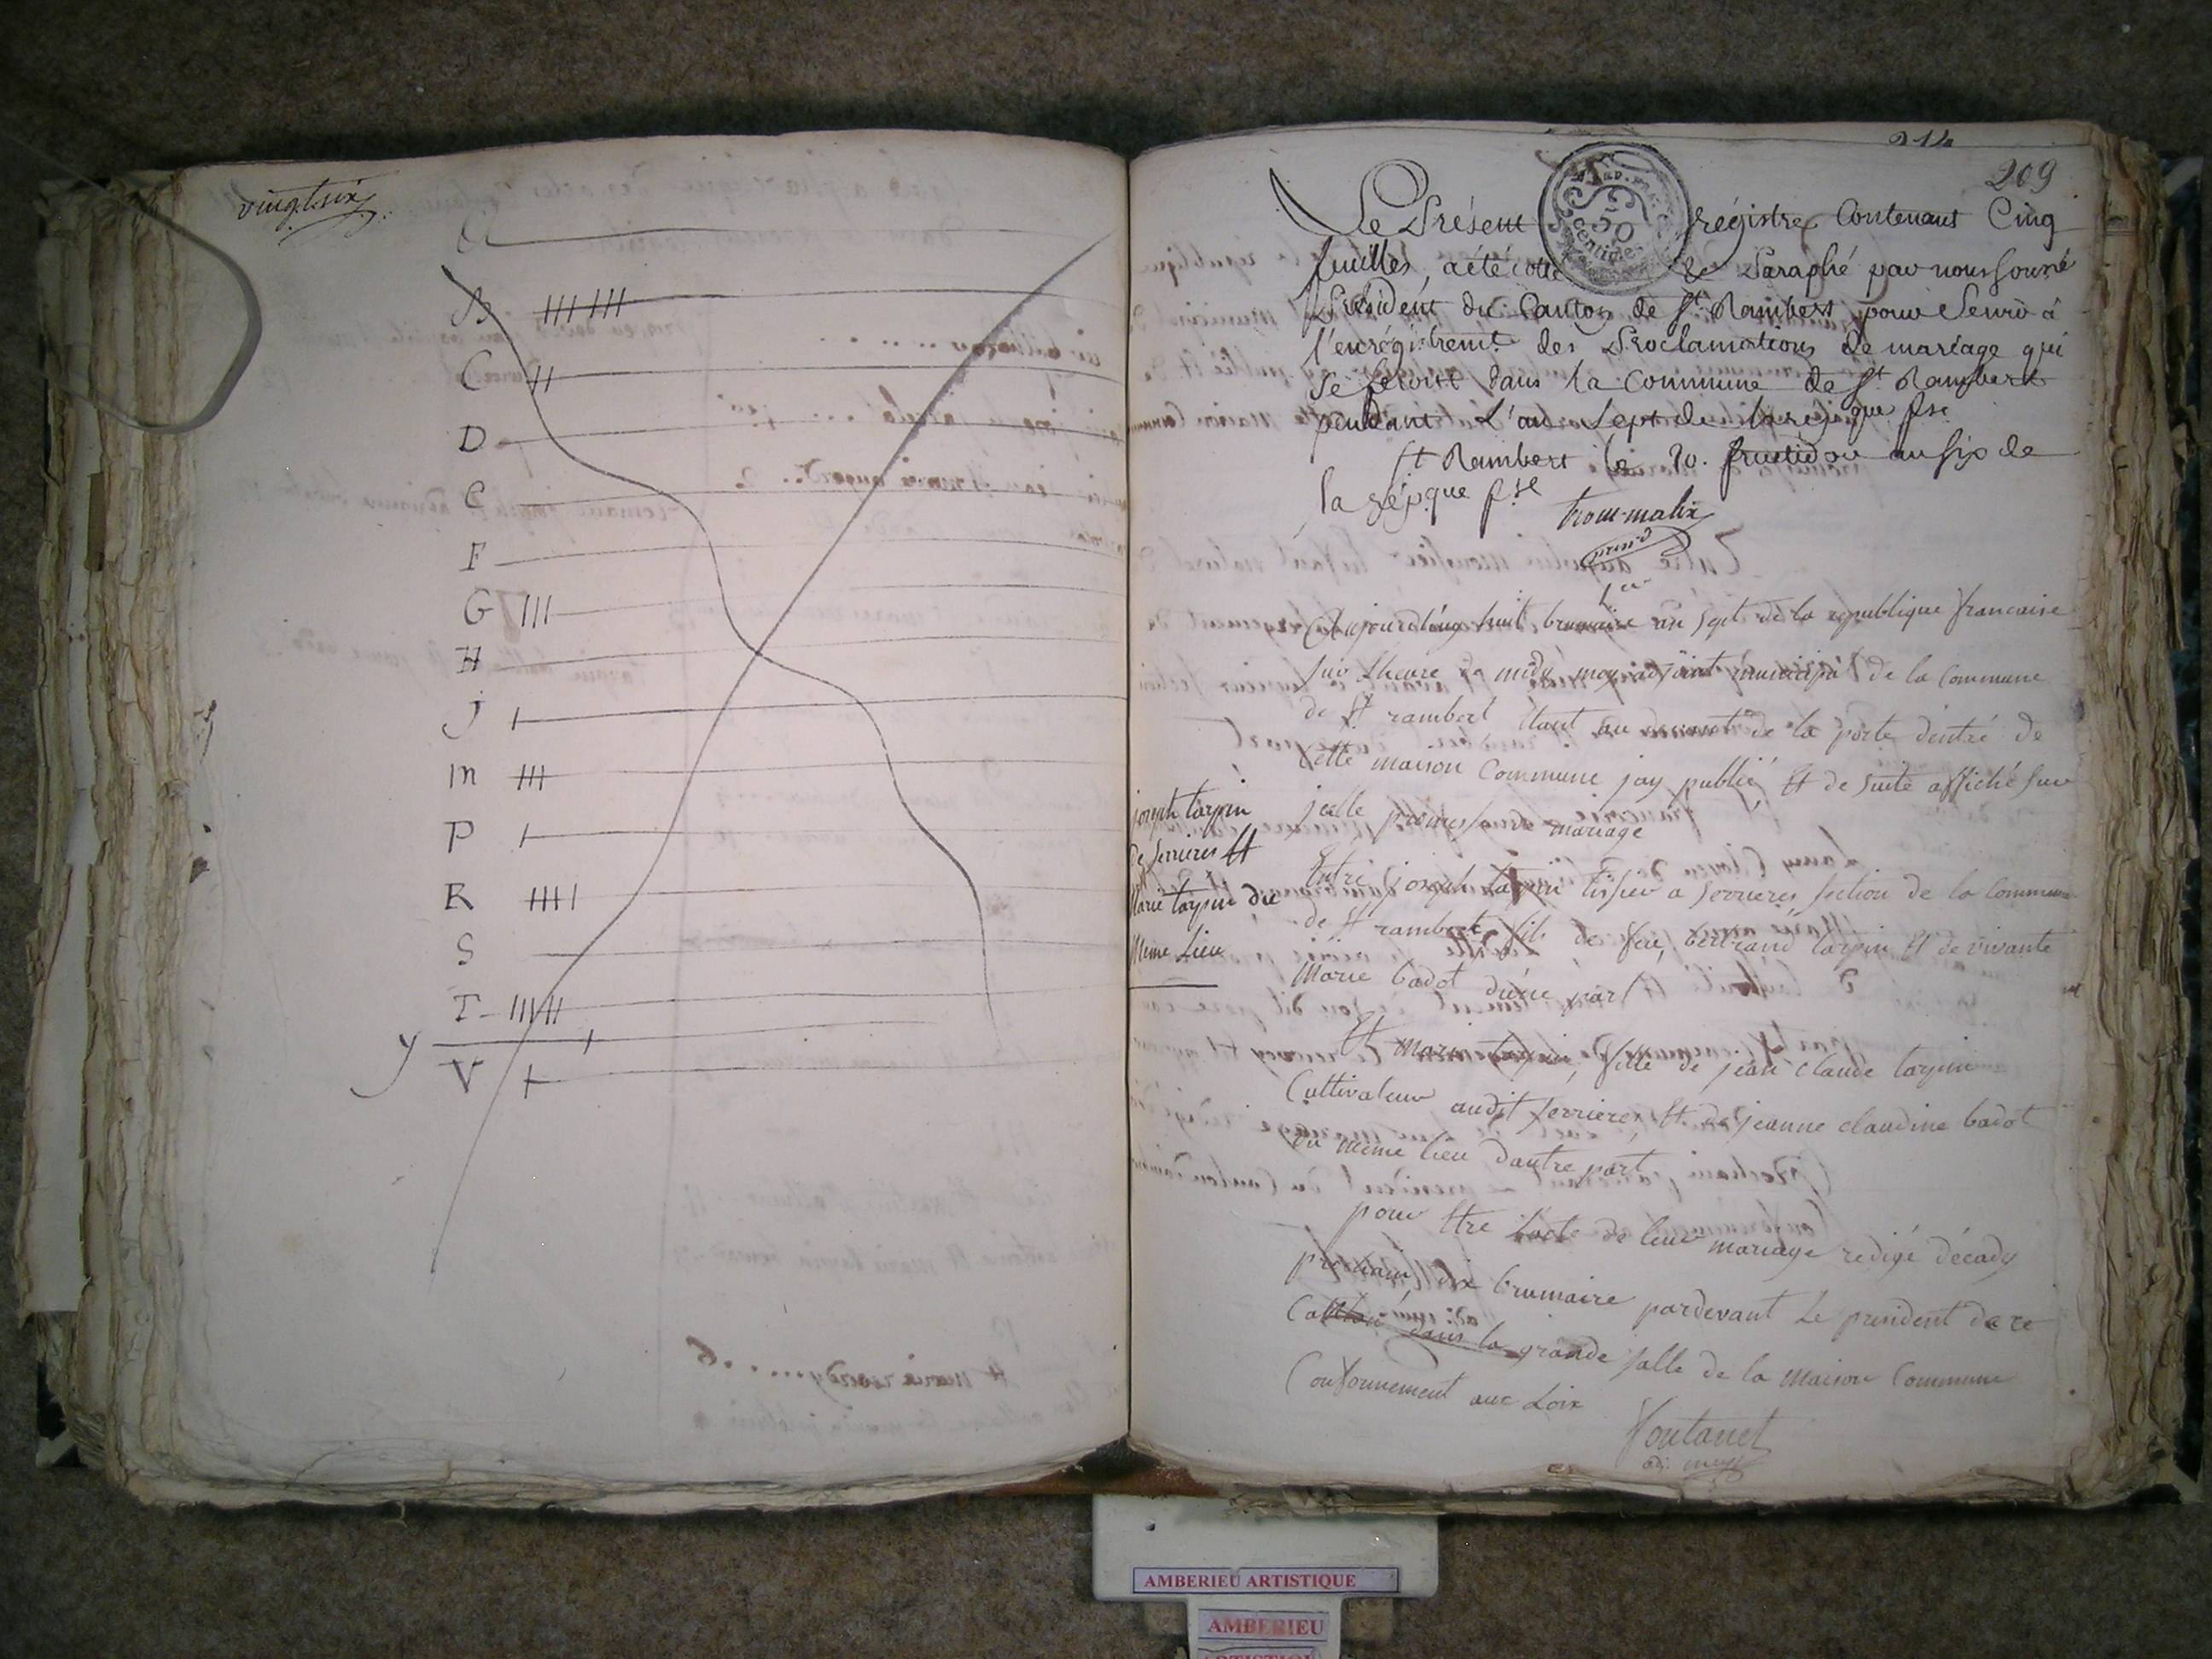 vingt six
A
B
C
D
E
F
G
H
J
M
P
R
S
T
Y
V
214
209
Le Présent régistre Contenant Cinq
feuilles, a été cotté & Paraphé par nous
Président du Canton de St Rambert pour Servir à
l'enrégistremt des Proclamations de mariage qui
se feront dans la Commune de St Rambert
pendant L'an Sept de la repque fse
St Rambert le 20. fructidor an Six de
la répque fse
presid
1er
Aujourd'huy huit brumaire an Sept de la republique francaise
Sur Lheure de midy moy adjoint municipal de la Commune
de St rambert Etant au devant de la porte d'entré de
Cette maison Commune jay publié Et de Suite affiché Sur
jcelle promesse mariage
joseph tarpin
de Serrieres Et
Marie tarpin du
Meme Lieu
Entre joseph tarpin tissier a Serrieres Section de la Commune
de St rambert fils de feu bertrand tarpin Et de vivante
Marie badot d'une part
Et marie tarpin, fille de jean Claude tarpin
Cultivateur audit Serrieres Et de jeanne claudine badot
du meme lieu dautre part
pour Etre Lacte de leur mariage redigé décady
prochain dix brumaire pardevant Le president de ce
Canton dans la grande Salle de la maison Commune
Conformement aux Loix
Fontanet
adj. mupl
AMBERIEU ARTISTIQUE
AMBERIEU
ARTISTIQUE